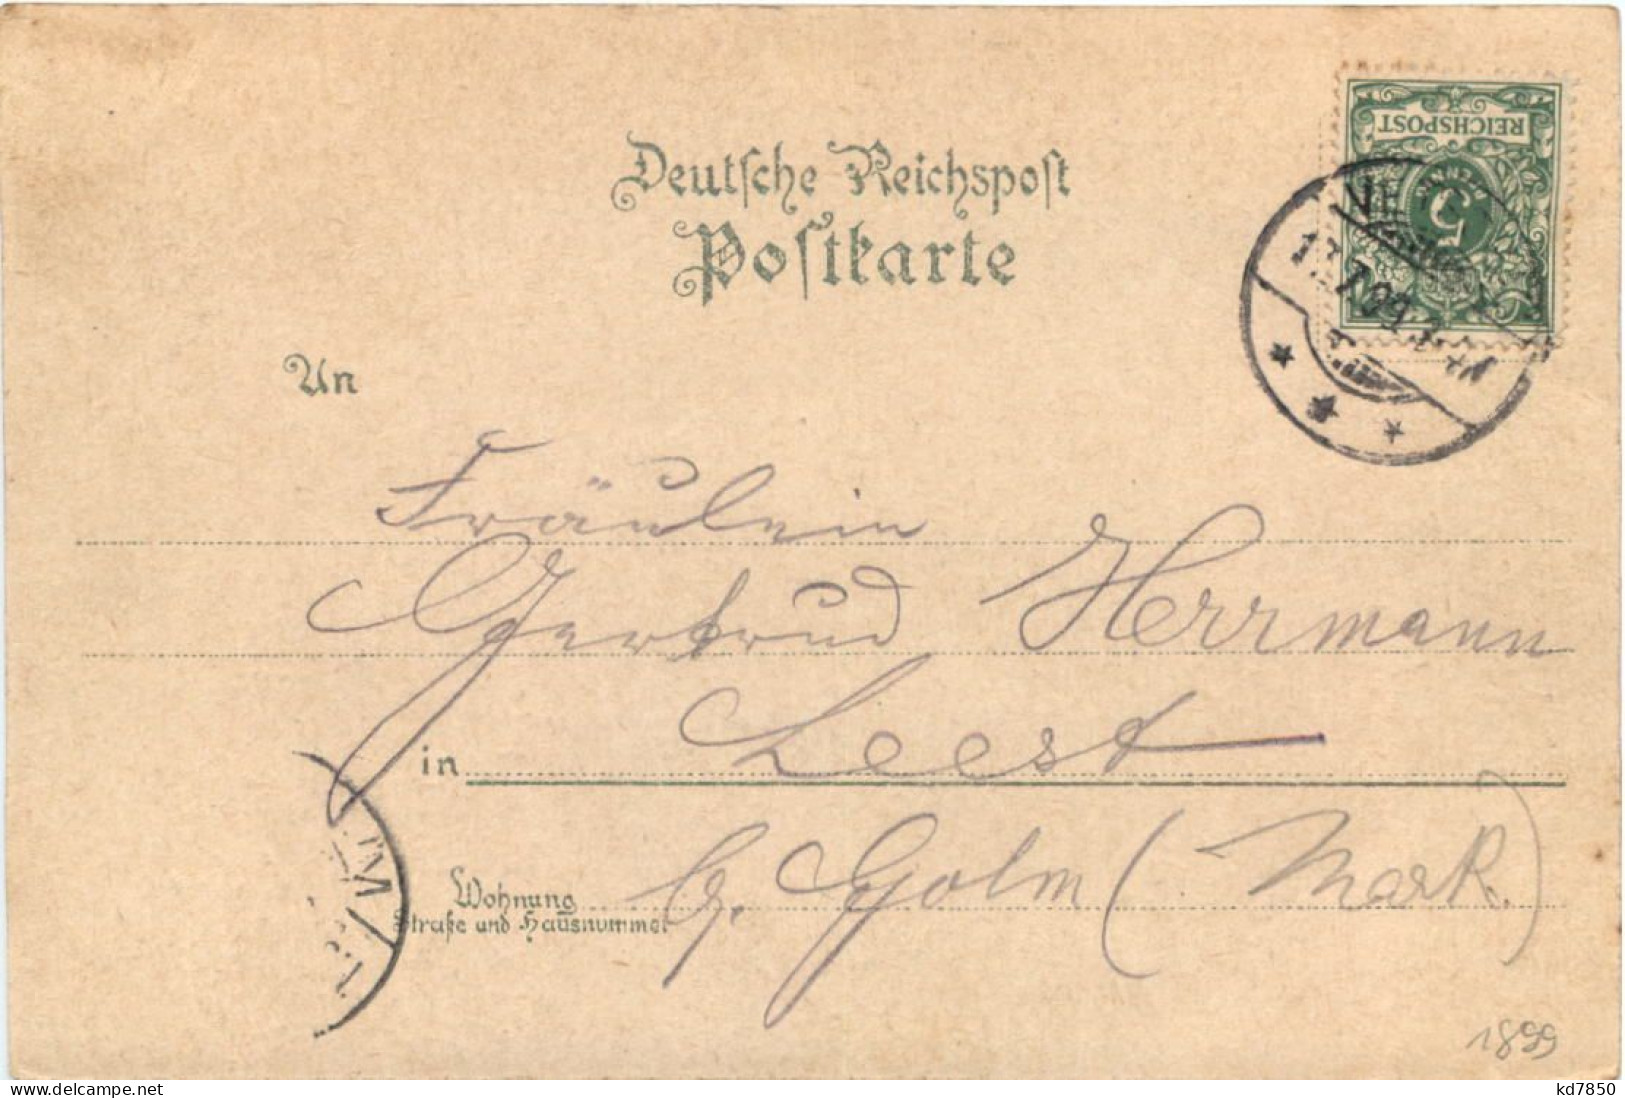 Deutsche Reichspost
Postkarte
REICHSPOST
5
An
Fräulein
Gertrud Herrmann
in Leest
b. Golm (Mark.)
Wohnung
Straße und Hausnummer
1899
www.delcampe.net
kd7850